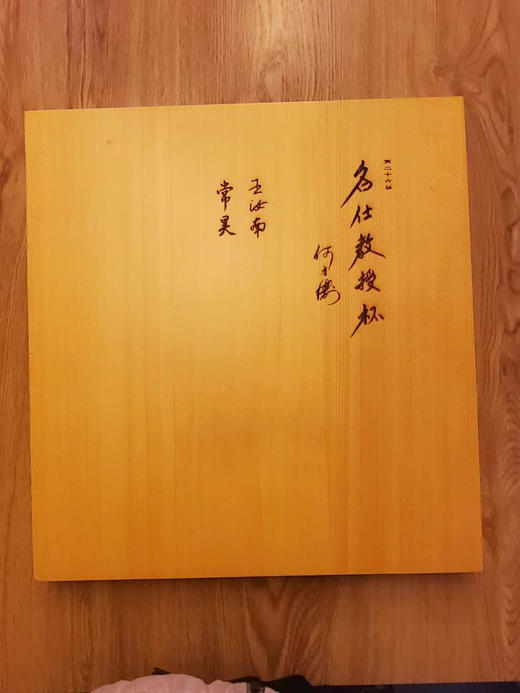 第二十六届
名仕教授杯
何小衛
王汝南
常昊